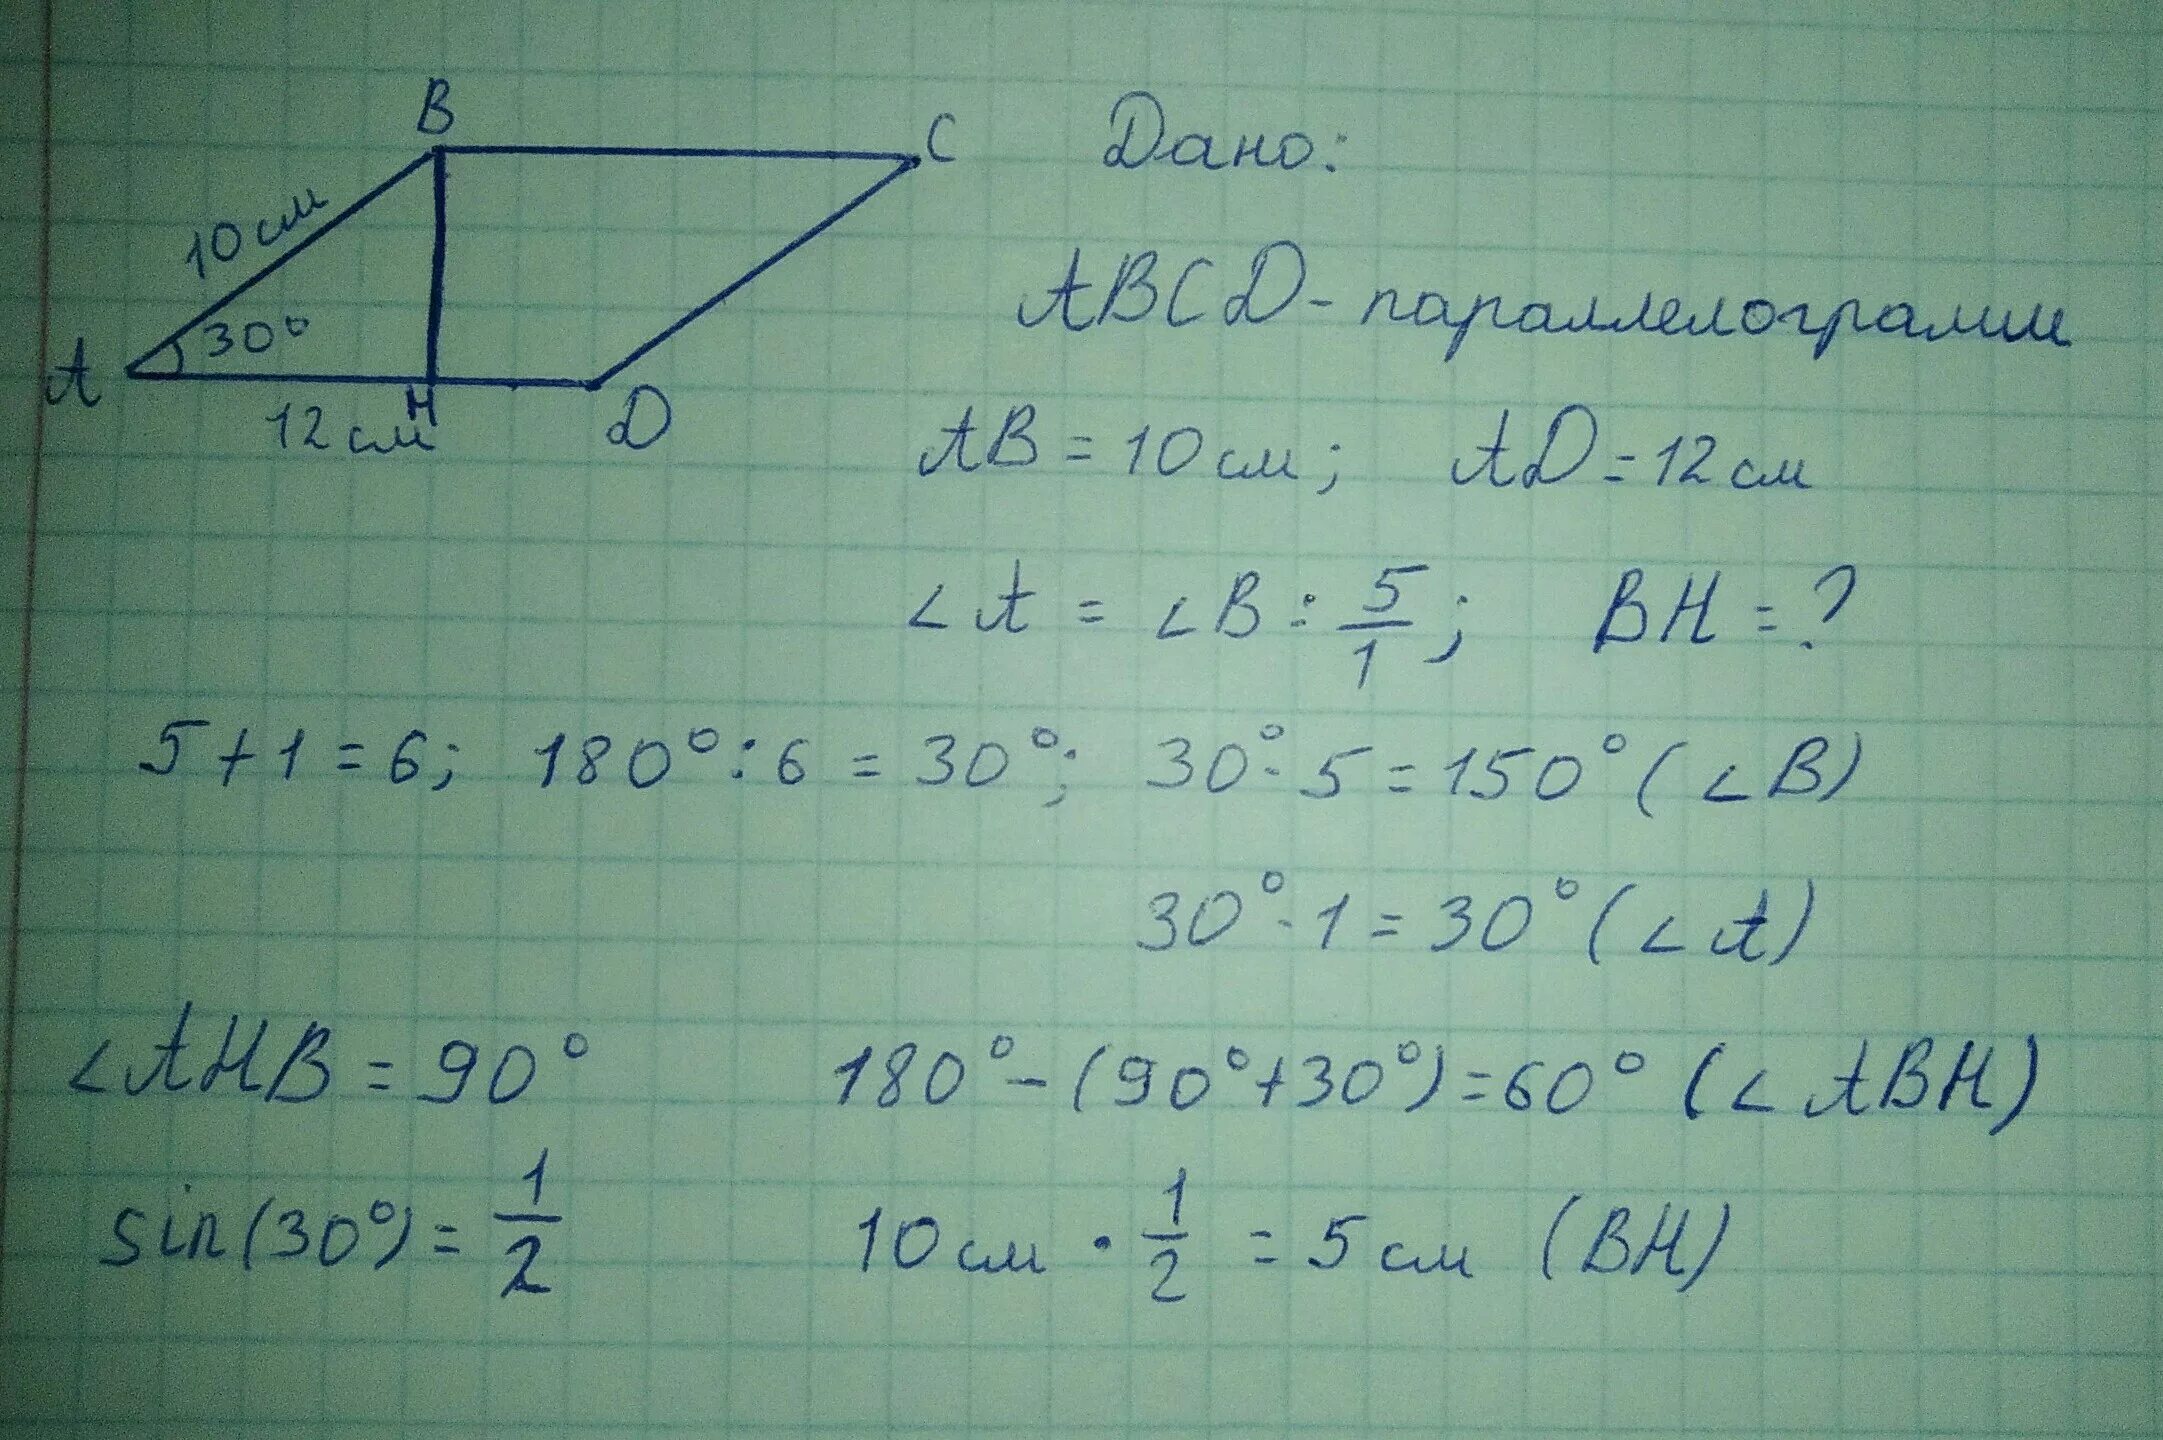 B
C
10 см
30°
A
12 см
H
D
Дано:
ABCD - параллелограмм
AB = 10 см; AD = 12 см
∠A = ∠B : 5/1; BH = ?
5 + 1 = 6; 180° : 6 = 30°; 30° · 5 = 150° (∠B)
30° · 1 = 30° (∠A)
∠AHB = 90° 180° - (90° + 30°) = 60° (∠ABH)
sin(30°) = 1/2 10 см · 1/2 = 5 см (BH)